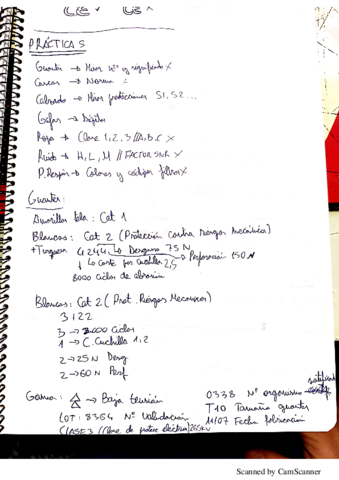 CE ✓ CE X
PRÁCTICAS
Guantes → Mirar Nos y significado X
Cascos → Norma
Calzado → Mirar protecciones S1, S2...
Gafas → Dígitos
Ropa → Clase 1, 2, 3 // A, B, C X
Ruido → H, L, M // FACTOR SNR X
P. Respir → Colores y códigos filtros X
Guantes:
Amarillos tela: Cat 1
Blancos: Cat 2 (Protección contra Riesgos Mecánicos)
4244 Lo Desgarro 75 N
Lo Corte por cuchilla 2,5 → Perforación 150 N
8000 ciclos de abrasión
Blancos: Cat 2 (Prot. Riesgos Mecánicos)
3122
3 → 2000 Ciclos
1 → C. Cuchilla 1,2
2 → 25 N Desg
2 → 60 N Perf
Goma: → Baja tensión
0338 Nº organismo
LOT: 8364 Nº Validación
T10 Tamaño guantes
11/07 Fecha fabricación
Scanned by CamScanner